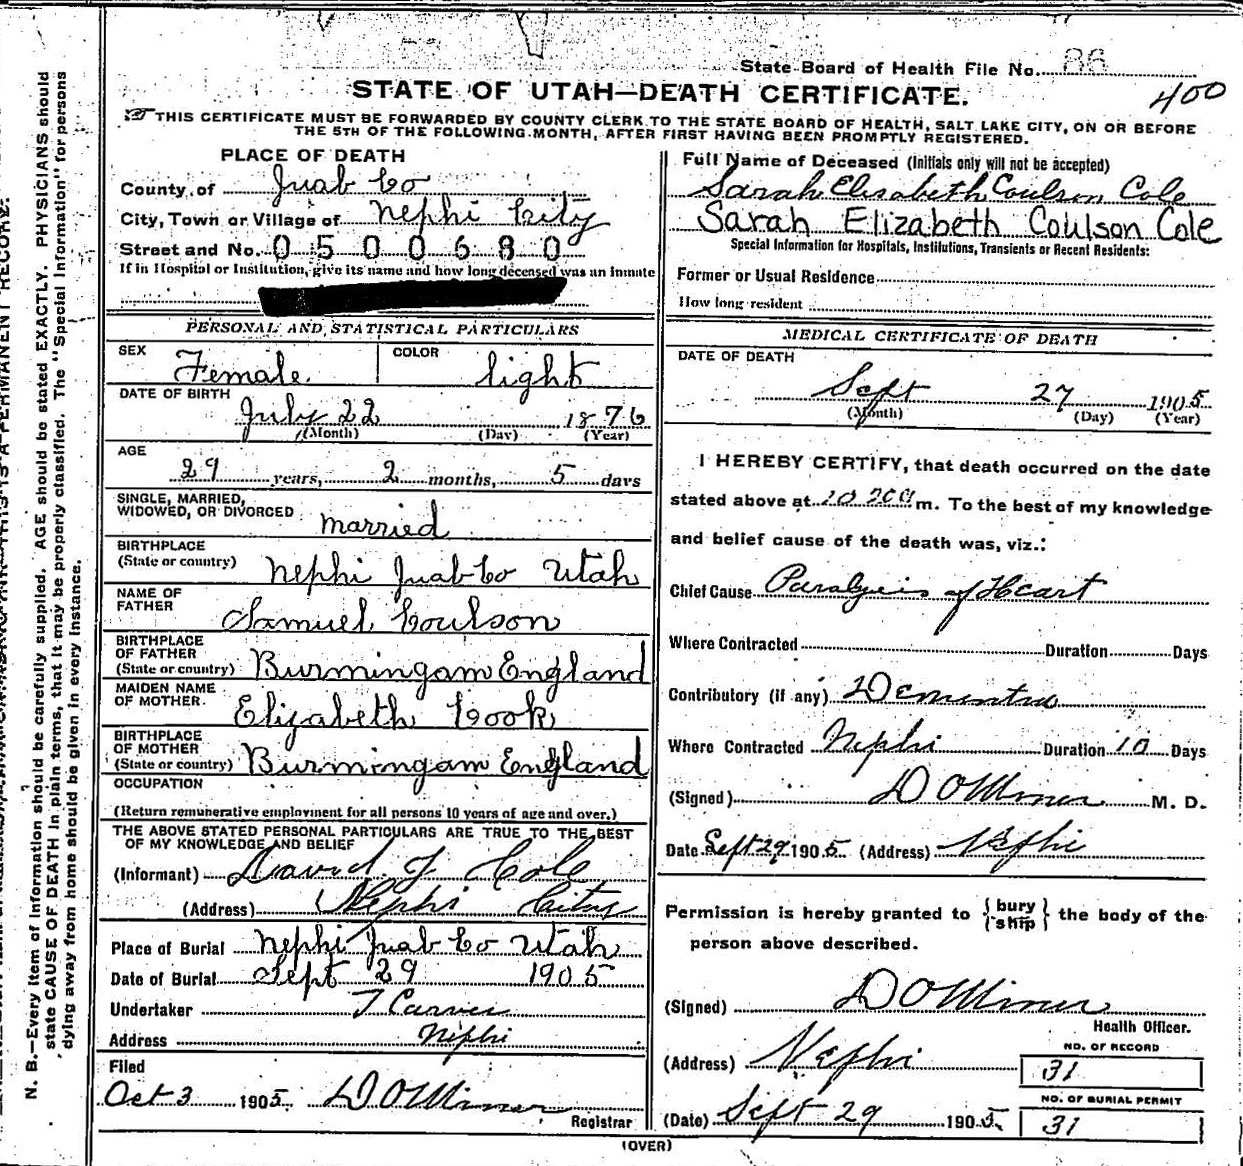 State Board of Health File No. 86
400
STATE OF UTAH—DEATH CERTIFICATE.
THIS CERTIFICATE MUST BE FORWARDED BY COUNTY CLERK TO THE STATE BOARD OF HEALTH, SALT LAKE CITY, ON OR BEFORE
THE 5TH OF THE FOLLOWING MONTH, AFTER FIRST HAVING BEEN PROMPTLY REGISTERED.
PLACE OF DEATH
County of Juab Co
City, Town or Village of Nephi City
Street and No. 0 5 0 0 6 8 0
If in Hospital or Institution, give its name and how long deceased was an inmate
PERSONAL AND STATISTICAL PARTICULARS
SEX Female COLOR light
DATE OF BIRTH July 22 1876
(Month) (Day) (Year)
AGE
29 years, 2 months, 5 days
SINGLE, MARRIED,
WIDOWED, OR DIVORCED married
BIRTHPLACE
(State or country) Nephi Juab Co Utah
NAME OF
FATHER Samuel Coulson
BIRTHPLACE
OF FATHER
(State or country) Burmingam England
MAIDEN NAME
OF MOTHER. Elizabeth Cook
BIRTHPLACE
OF MOTHER
(State or country) Burmingam England
OCCUPATION
(Return remunerative employment for all persons 10 years of age and over.)
THE ABOVE STATED PERSONAL PARTICULARS ARE TRUE TO THE BEST
OF MY KNOWLEDGE AND BELIEF
(Informant) David F Cole
(Address) Nephi City
Place of Burial Nephi Juab Co Utah
Date of Burial Sept 29 1905
Undertaker T Carver
Address Nephi
Filed
Oct 3 1905. D O Miner
Registrar
(OVER)
Full Name of Deceased (Initials only will not be accepted)
Sarah Elisabeth Coulson Cole
Sarah Elizabeth Coulson Cole
Special Information for Hospitals, Institutions, Transients or Recent Residents:
Former or Usual Residence
How long resident
MEDICAL CERTIFICATE OF DEATH
DATE OF DEATH
Sept 27 1905
(Month) (Day) (Year)
I HEREBY CERTIFY, that death occurred on the date
stated above at m. To the best of my knowledge
and belief cause of the death was, viz.:
Chief Cause Paralysis of Heart
Where Contracted Duration Days
Contributory (if any) Dementia
Where Contracted Nephi Duration 10 Days
(Signed) D O Miner M. D.
Date Sept 29 1905. (Address) Nephi
Permission is hereby granted to {bury
ship} the body of the
person above described.
(Signed) D O Miner
Health Officer.
(Address) Nephi
NO. OF RECORD
31
(Date) Sept 29 1905.
NO. OF BURIAL PERMIT
31
N. B.—Every item of information should be carefully supplied. AGE should be stated EXACTLY. PHYSICIANS should
state CAUSE OF DEATH in plain terms, that it may be properly classified. The "Special Information" for persons
dying away from home should be given in every instance.